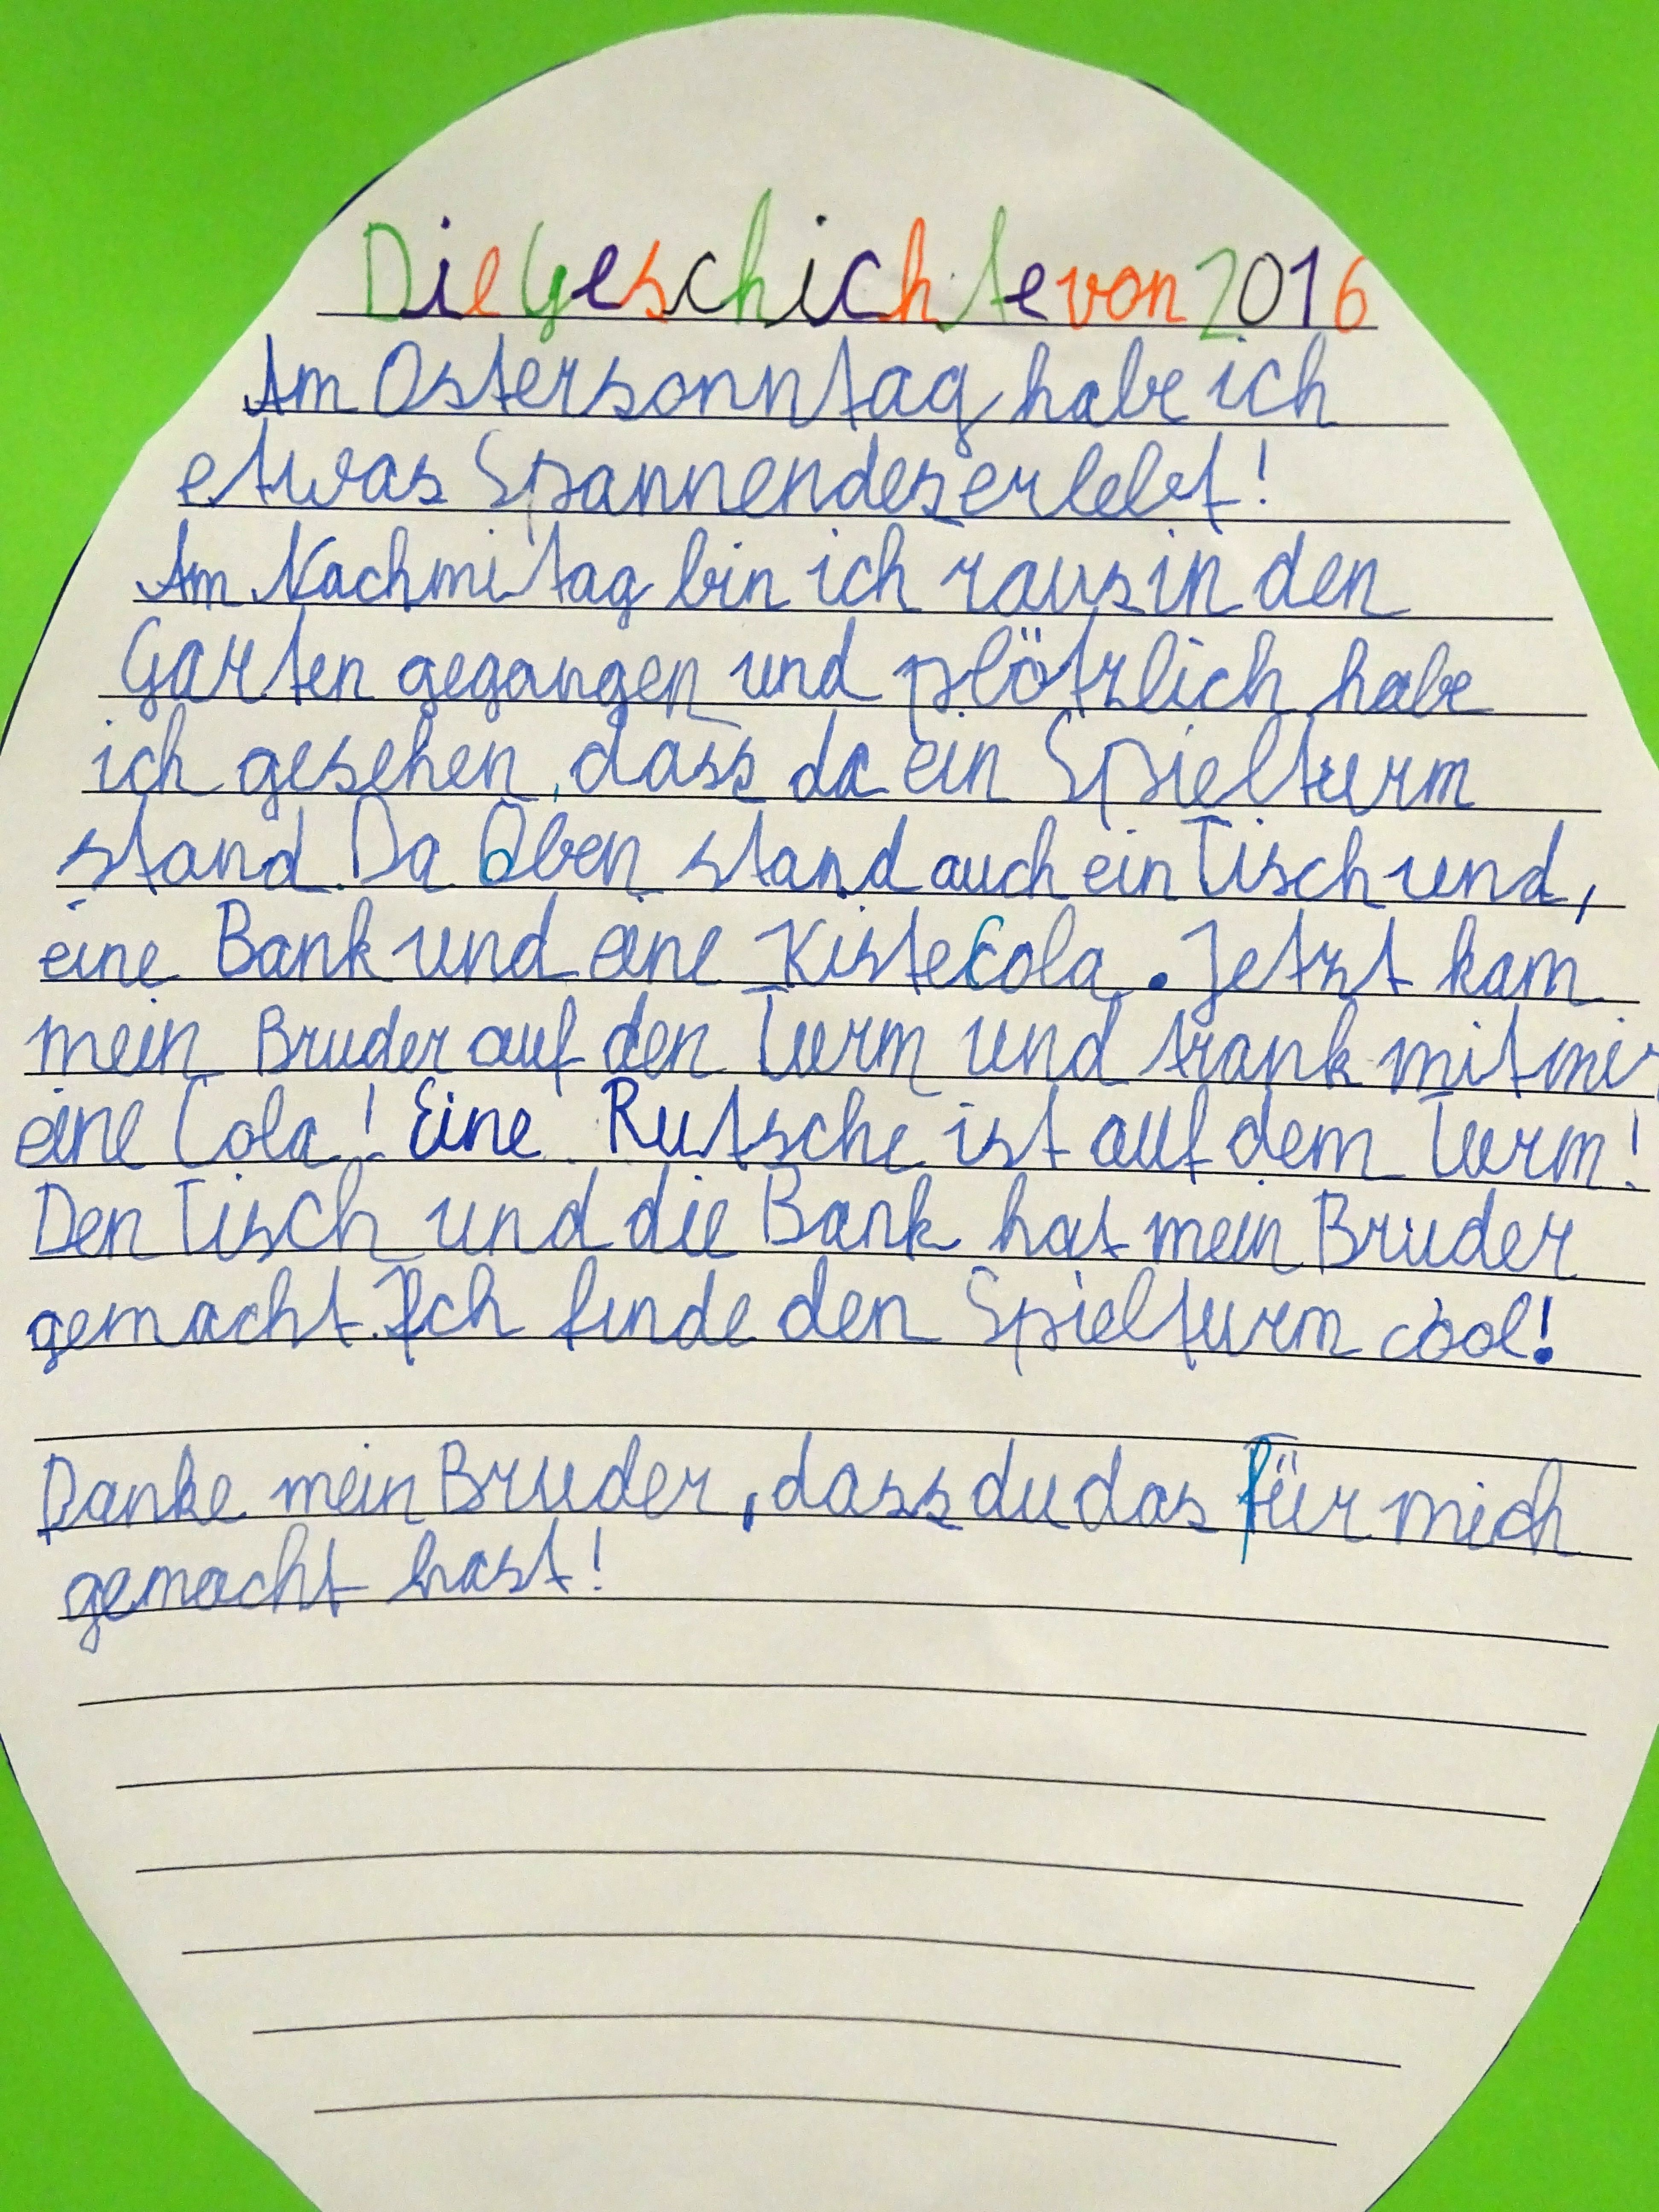 Die Geschichte von 2016
Am Ostersonntag habe ich
etwas Spannendes erlebt!
Am Nachmitag bin ich raus in den
Garten gegangen und plötzlich habe
ich gesehen, dass da ein Spielturm
stand. Da Oben stand auch ein Tisch und,
eine Bank und eine Kiste Cola. Jetzt kam
mein Bruder auf den Turm und trank mit mir
eine Cola! Eine Rutsche ist auf dem Turm!
Den Tisch und die Bank hat mein Bruder
gemacht. Ich finde den Spielturm cool!
Danke mein Bruder, dass du das für mich
gemacht hast!